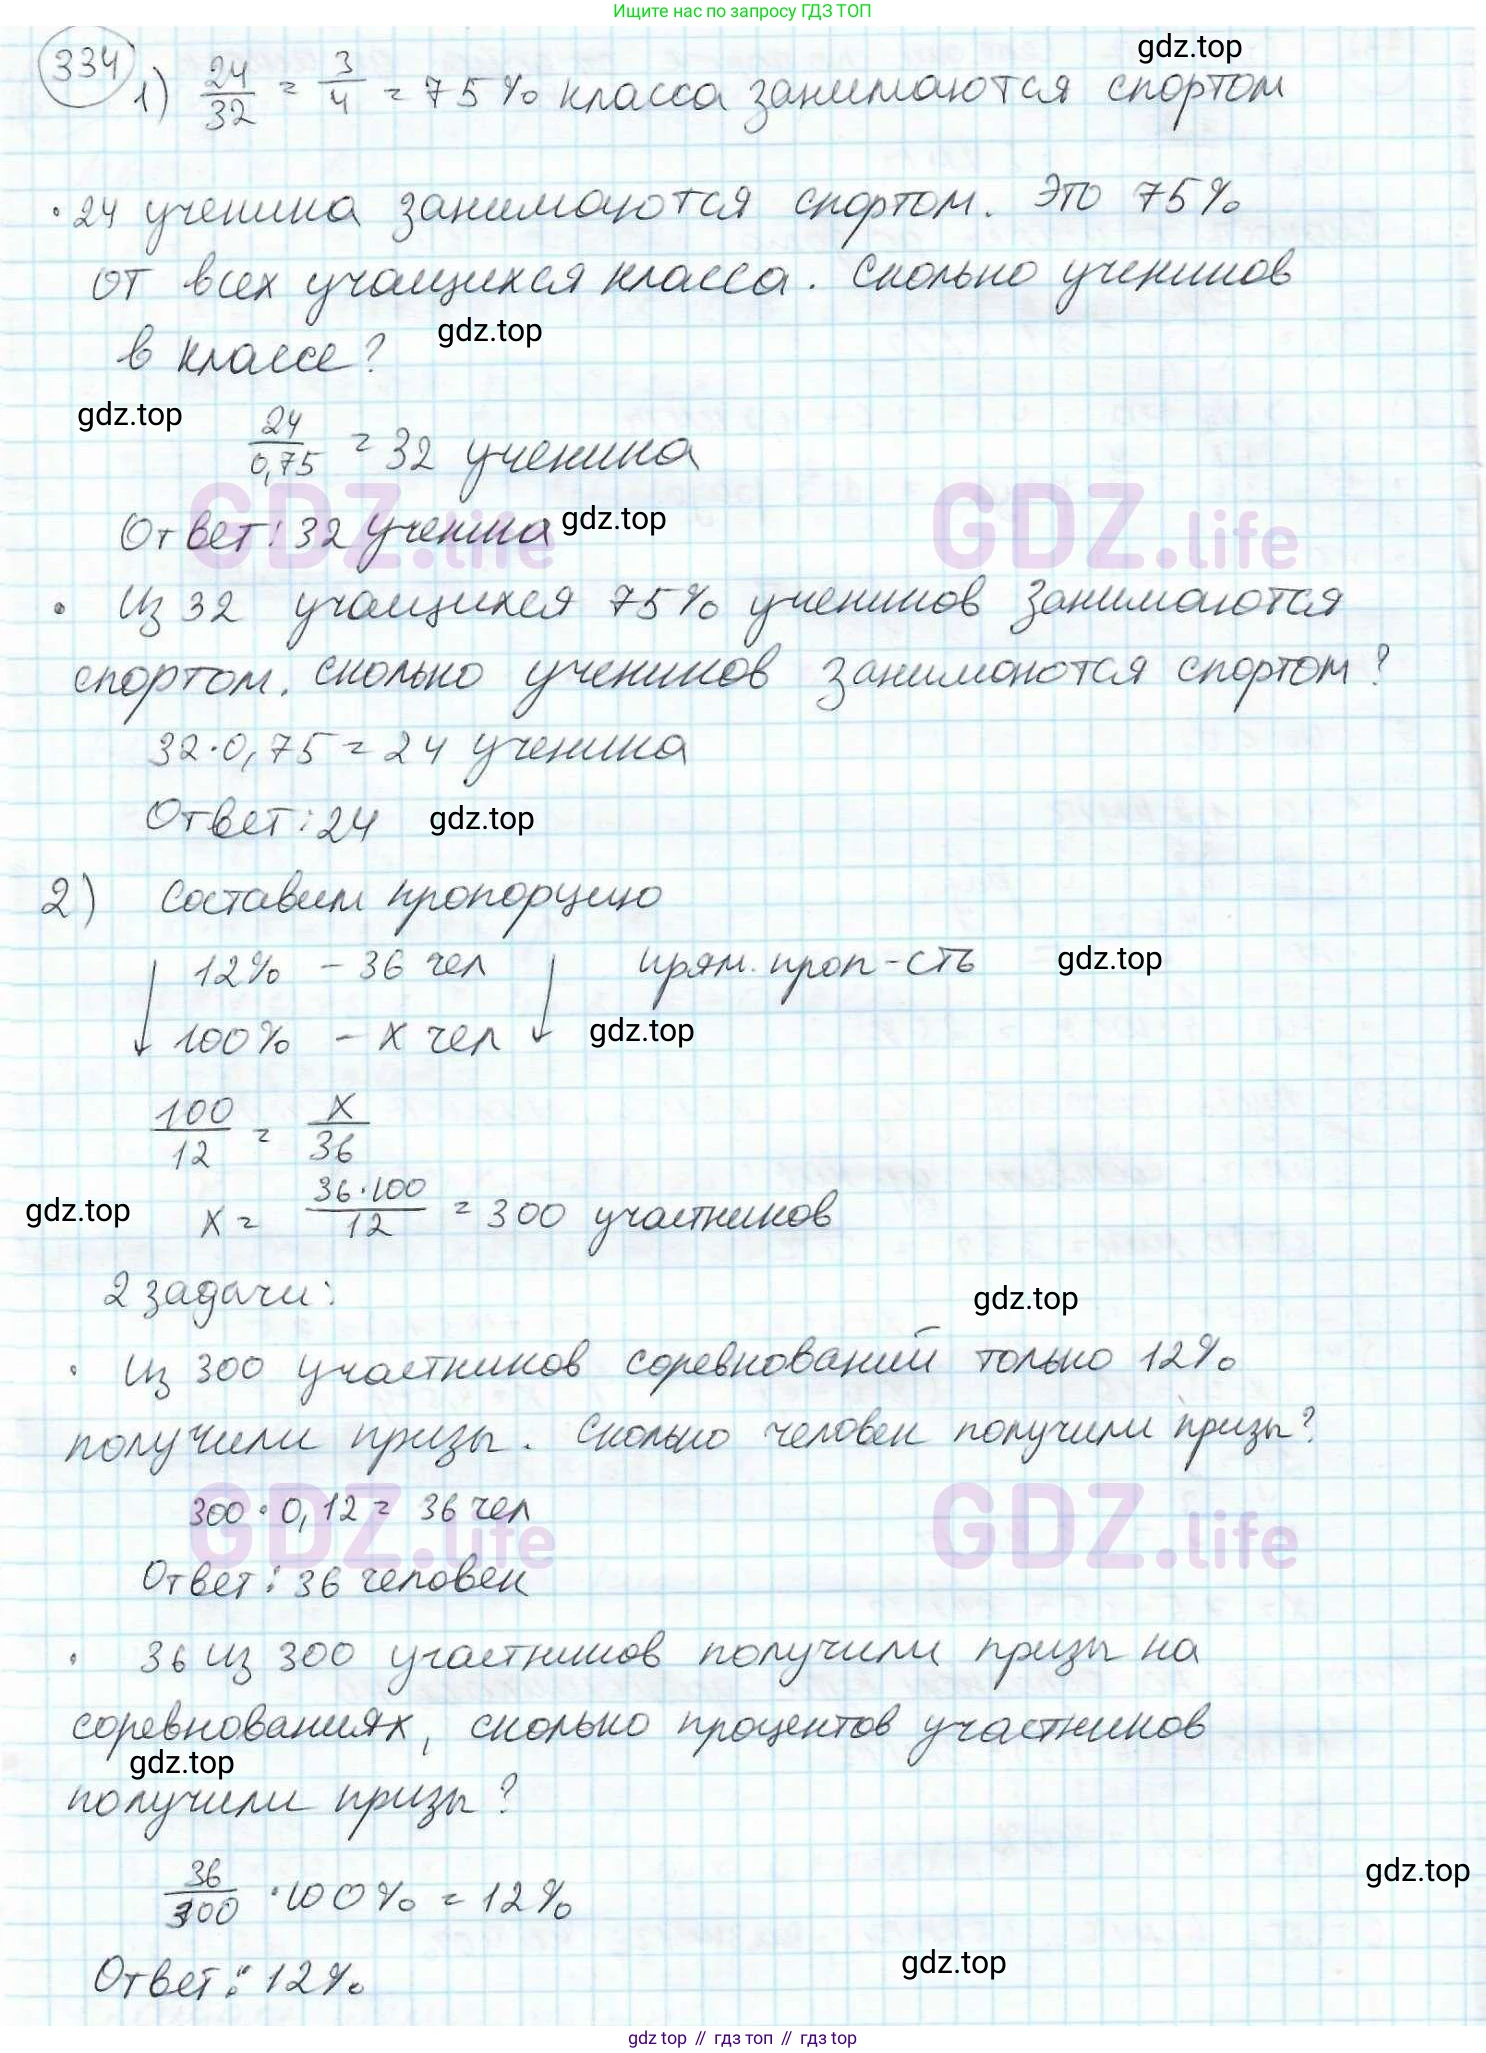 Ищите нас по запросу ГДЗ ТОП
gdz.top
334
1) 24/32 = 3/4 = 75% класса занимаются спортом
• 24 ученика занимаются спортом. Это 75%
от всех учащихся класса. Сколько учеников
в классе?
gdz.top
gdz.top
24/0,75 = 32 ученика
GDZ.life GDZ.life
Ответ: 32 ученика
gdz.top
• Из 32 учащихся 75% учеников занимаются
спортом. Сколько учеников занимаются спортом?
32·0,75 = 24 ученика
Ответ: 24
gdz.top
2) Составим пропорцию
12% – 36 чел прям. проп-сть
gdz.top
100% – x чел
gdz.top
100/12 = x/36
gdz.top
x = 36·100/12 = 300 участников
2 задачи:
gdz.top
• Из 300 участников соревнований только 12%
получили призы. Сколько человек получили призы?
GDZ.life GDZ.life
300·0,12 = 36 чел
Ответ: 36 человек
• 36 из 300 участников получили призы на
соревнованиях, сколько процентов участников
gdz.top
получили призы?
36/300 ·100% = 12%
gdz.top
Ответ: 12%
gdz.top
gdz top // гдз топ // gdz top